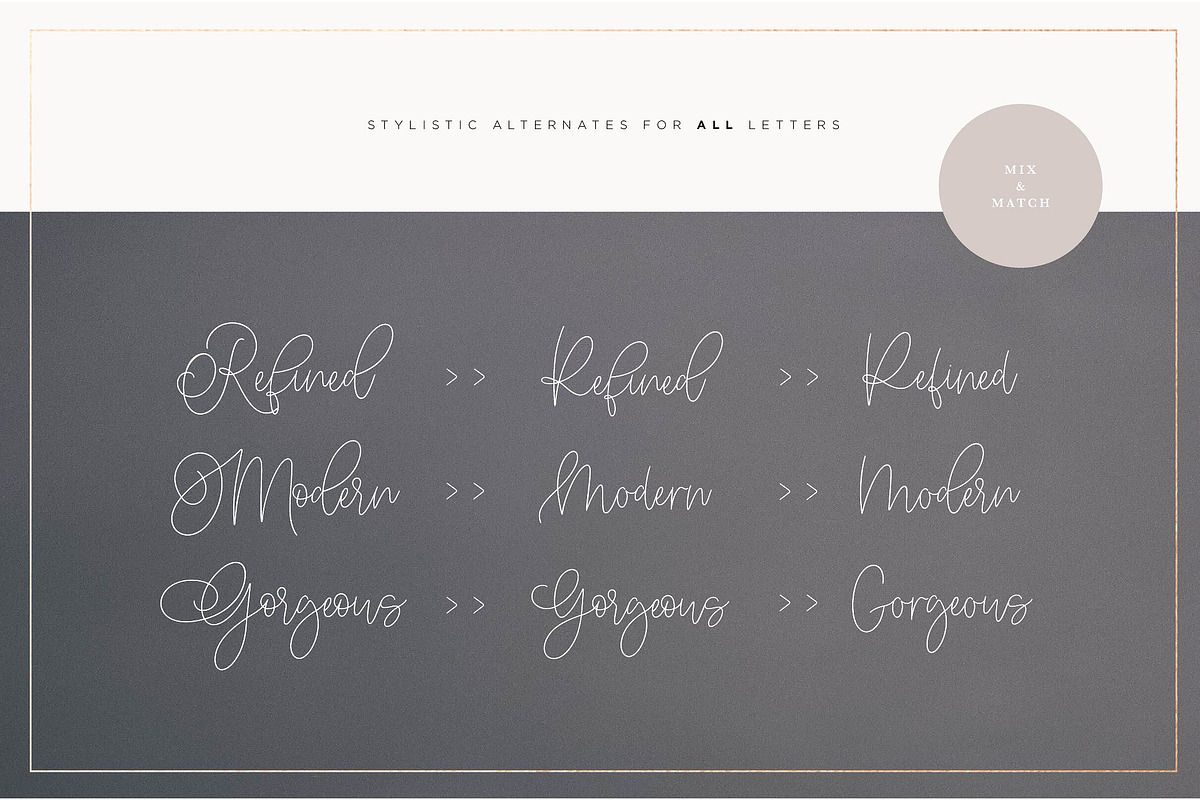 STYLISTIC ALTERNATES FOR ALL LETTERS
MIX
&
MATCH
Refined >> Refined >> Refined
Modern >> Modern >> Modern
Gorgeous >> Gorgeous >> Gorgeous